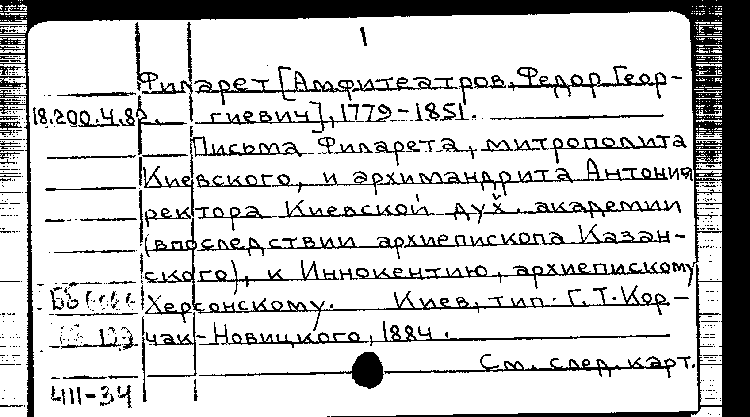 1
Филарет [Амфитеатров, Федор Геор-
18.200.4.82. гиевич], 1779-1851.
Письма Филарета, митрополита
Киевского, и архимандрита Антония
ректора Киевской дух. академии
(впоследствии архиепископа Казан-
ского), к Иннокентию, архиепископу
Херсонскому. Киев, тип. Г.Т.Кор-
чак-Новицкого, 1884.
См. след. карт.
4111-34